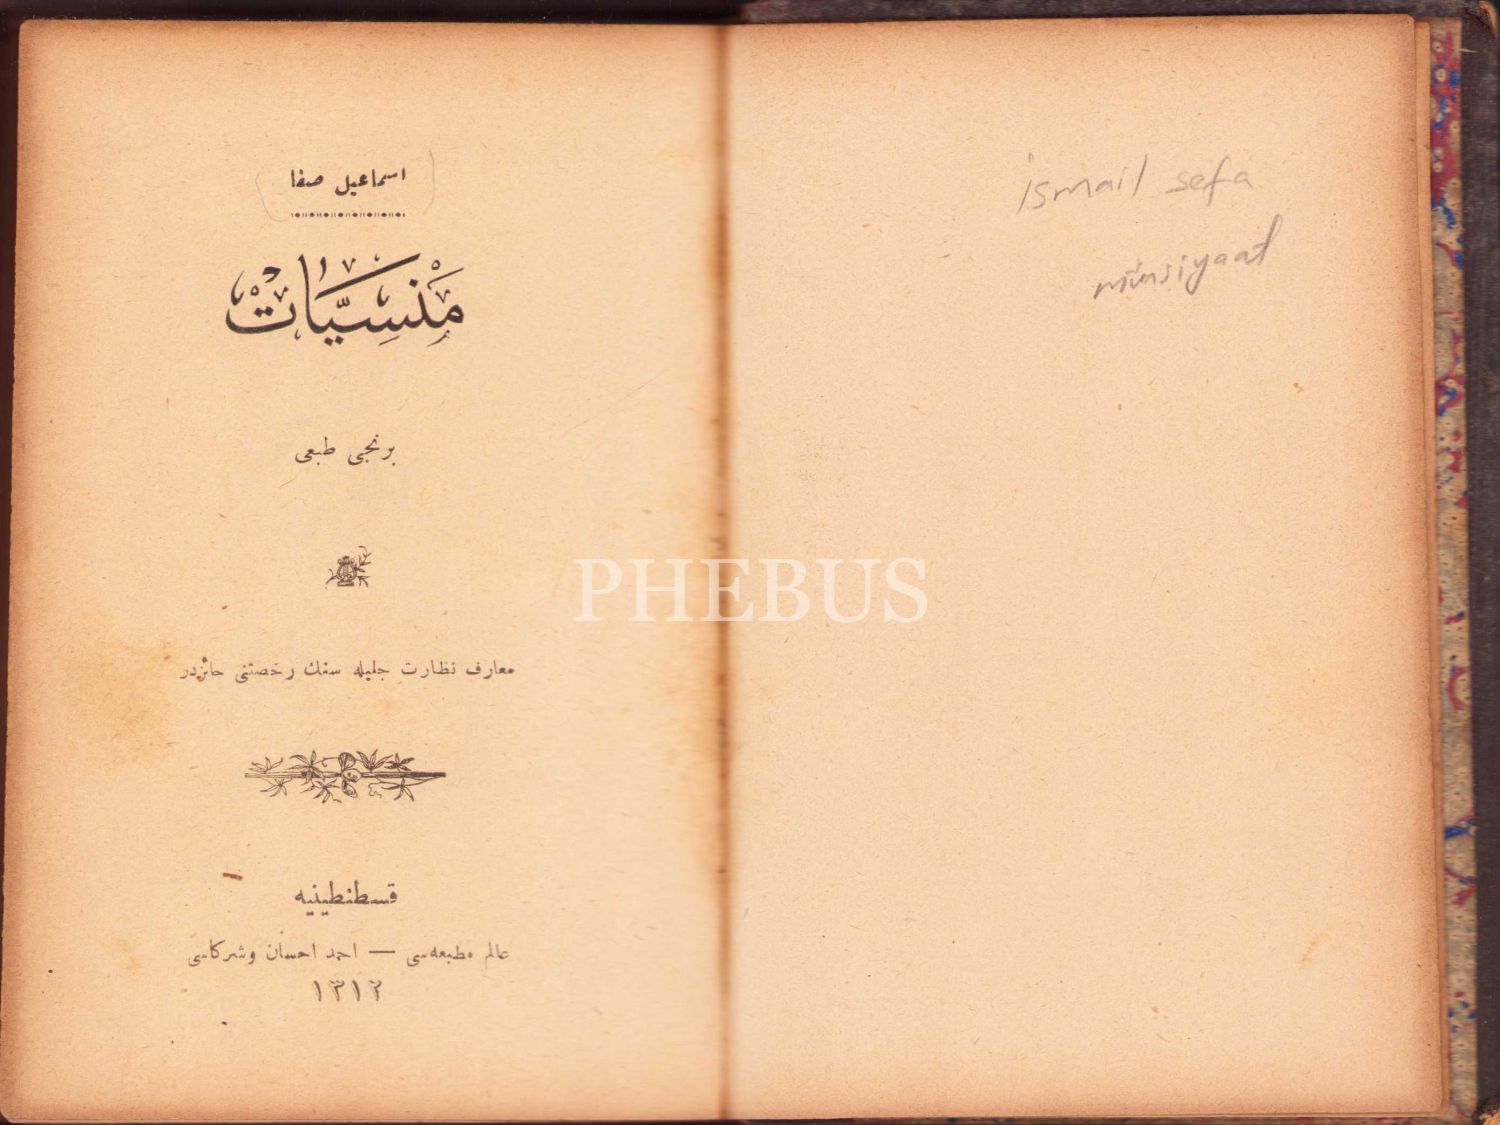 اسماعيل صفا
مَنْسِيَّات
برنجى طبعى
معارف نظارت جليله سنك رخصتنى حائزدر
قسطنطينيه
عالم مطبعه‌سى — احمد احسان وشركاسى
١٣١٢
ismail sefa
münsiyaat
PHEBUS